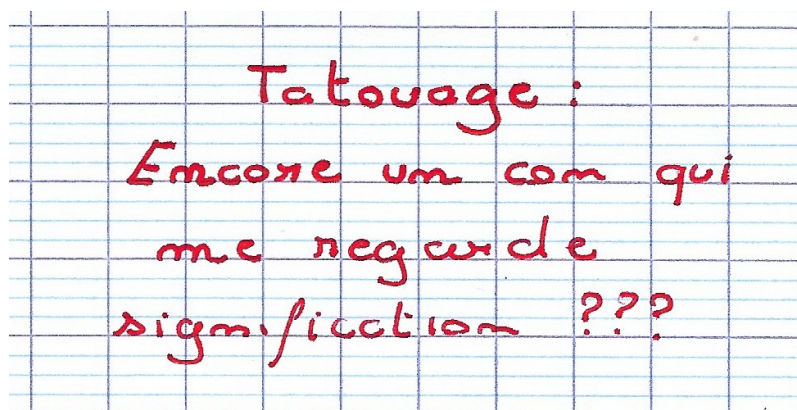 Tatouage :
Encore un con qui
me regarde
signification ???